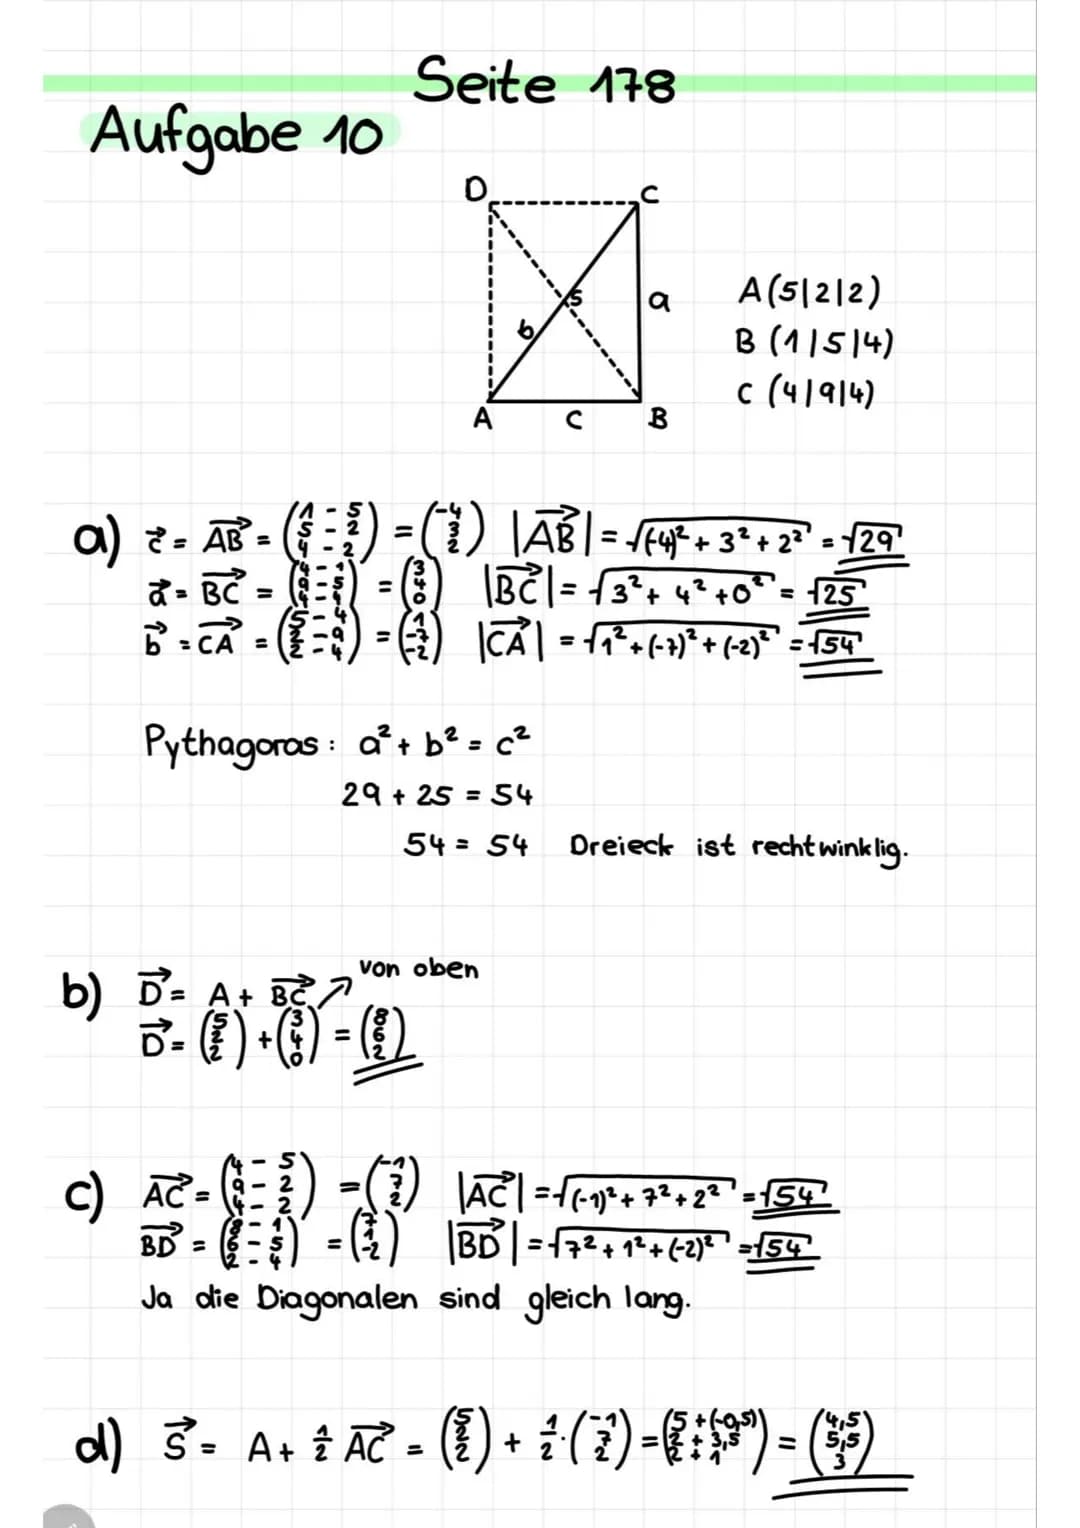 Seite 178
Aufgabe 10
D C
S a
b
A C B
A(5|2|2)
B (1|5|4)
C (4|9|4)
a) c⃗ = AB⃗ = (1 - 5, 5 - 2, 4 - 2) = (-4, 3, 2) |AB⃗| = √(-4)² + 3² + 2² = √29
a⃗ = BC⃗ = (4 - 1, 9 - 5, 4 - 4) = (3, 4, 0) |BC⃗| = √3² + 4² + 0² = √25
b⃗ = CA⃗ = (5 - 4, 2 - 9, 2 - 4) = (1, -7, -2) |CA⃗| = √1² + (-7)² + (-2)² = √54
Pythagoras: a² + b² = c²
29 + 25 = 54
54 = 54 Dreieck ist rechtwinklig.
b) D⃗ = A + BC⃗ ↗ von oben
D⃗ = (5, 2, 2) + (3, 4, 0) = (8, 6, 2)
c) AC⃗ = (4 - 5, 9 - 2, 4 - 2) = (-1, 7, 2) |AC⃗| = √(-1)² + 7² + 2² = √54
BD⃗ = (8 - 1, 6 - 5, 2 - 4) = (7, 1, -2) |BD⃗| = √7² + 1² + (-2)² = √54
Ja die Diagonalen sind gleich lang.
d) S⃗ = A + ½ AC⃗ = (5, 2, 2) + ½ · (-1, 7, 2) = (5 + (-0,5), 2 + 3,5, 2 + 1) = (4,5, 5,5, 3)